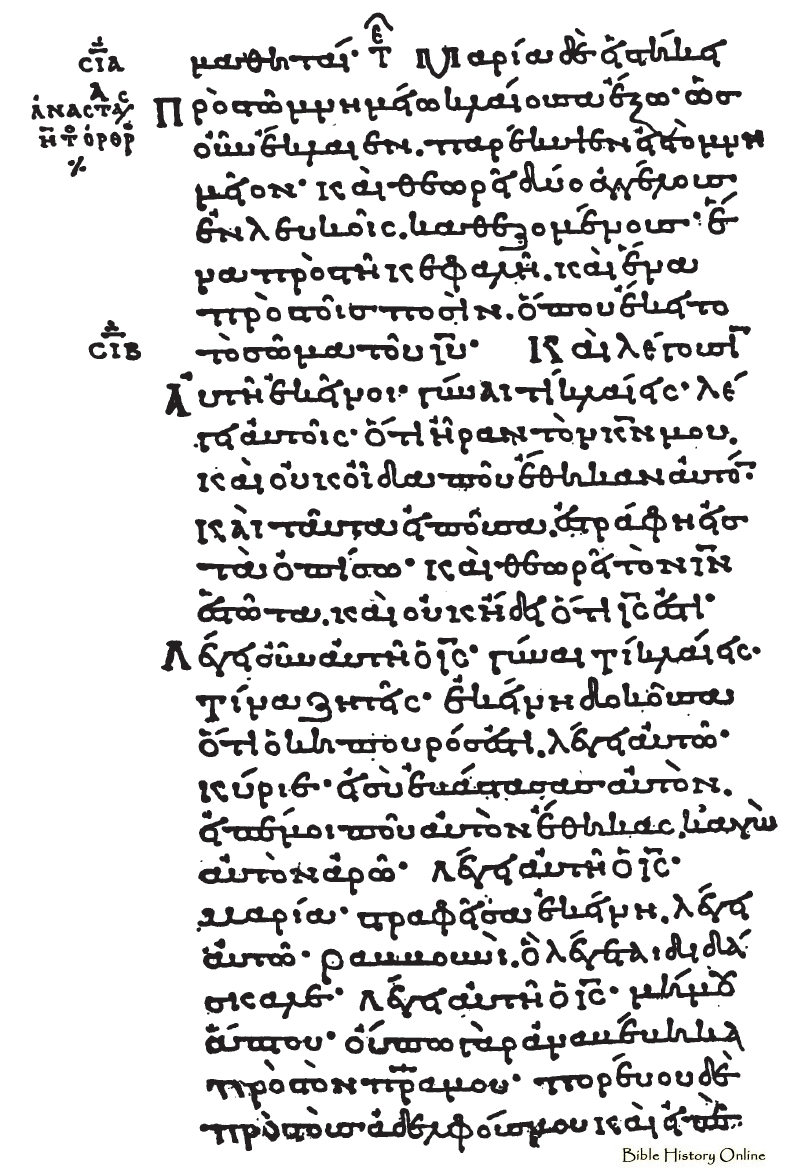 σ̅ι̅α̅
μαθηταί· Μαρία δὲ εἱστήκει
Πρὸς τῷ μνημείῳ κλαίουσα ἔξω· ὡς
οὖν ἔκλαιεν. παρέκυψεν εἰς τὸ μνη
μεῖον· καὶ θεωρεῖ δύο ἀγγέλους
ἐν λευκοῖς. καθεζομένους· ἕ
να πρὸς τῇ κεφαλῇ. καὶ ἕνα
πρὸς τοῖς ποσὶν. ὅπου ἔκειτο
σ̅ι̅β̅
τὸ σῶμα τοῦ ι̅υ̅· Καὶ λέγουσιν
Αὐτῇ ἐκεῖνοι· γύναι τί κλαίεις· λέ
γει αὐτοῖς· ὅτι ἦραν τὸν κ̅ν̅ μου.
καὶ οὐκ οἶδα ποῦ ἔθηκαν αὐτόν·
Καὶ ταῦτα εἰποῦσα. ἐστράφη εἰς
τὰ ὀπίσω· καὶ θεωρεῖ τὸν ι̅ν̅
ἑστῶτα. καὶ οὐκ ᾔδει ὅτι ι̅ς̅ ἐστι·
Λέγει οὖν αὐτῇ ὁ ι̅ς̅· γύναι τί κλαίεις·
τίνα ζητεῖς· ἐκείνη δοκοῦσα
ὅτι ὁ κηπουρός ἐστι. λέγει αὐτῷ·
κύριε· εἰ σὺ ἐβάστασας αὐτὸν.
εἰπέ μοι ποῦ αὐτὸν ἔθηκας, κἀγὼ
αὐτὸν ἀρῶ· Λέγει αὐτῇ ὁ ι̅ς̅·
μαρία· στραφεῖσα ἐκείνη. λέγει
αὐτῷ· ραββουνὶ. ὃ λέγεται διδά
σκαλε· Λέγει αὐτῇ ὁ ι̅ς̅· μή μου
ἅπτου· οὔπω γὰρ ἀναβέβηκα
πρὸς τὸν π̅ρ̅α̅ μου· πορεύου δὲ
πρὸς τοὺς ἀδελφούς μου καὶ εἰπὲ
Bible History Online